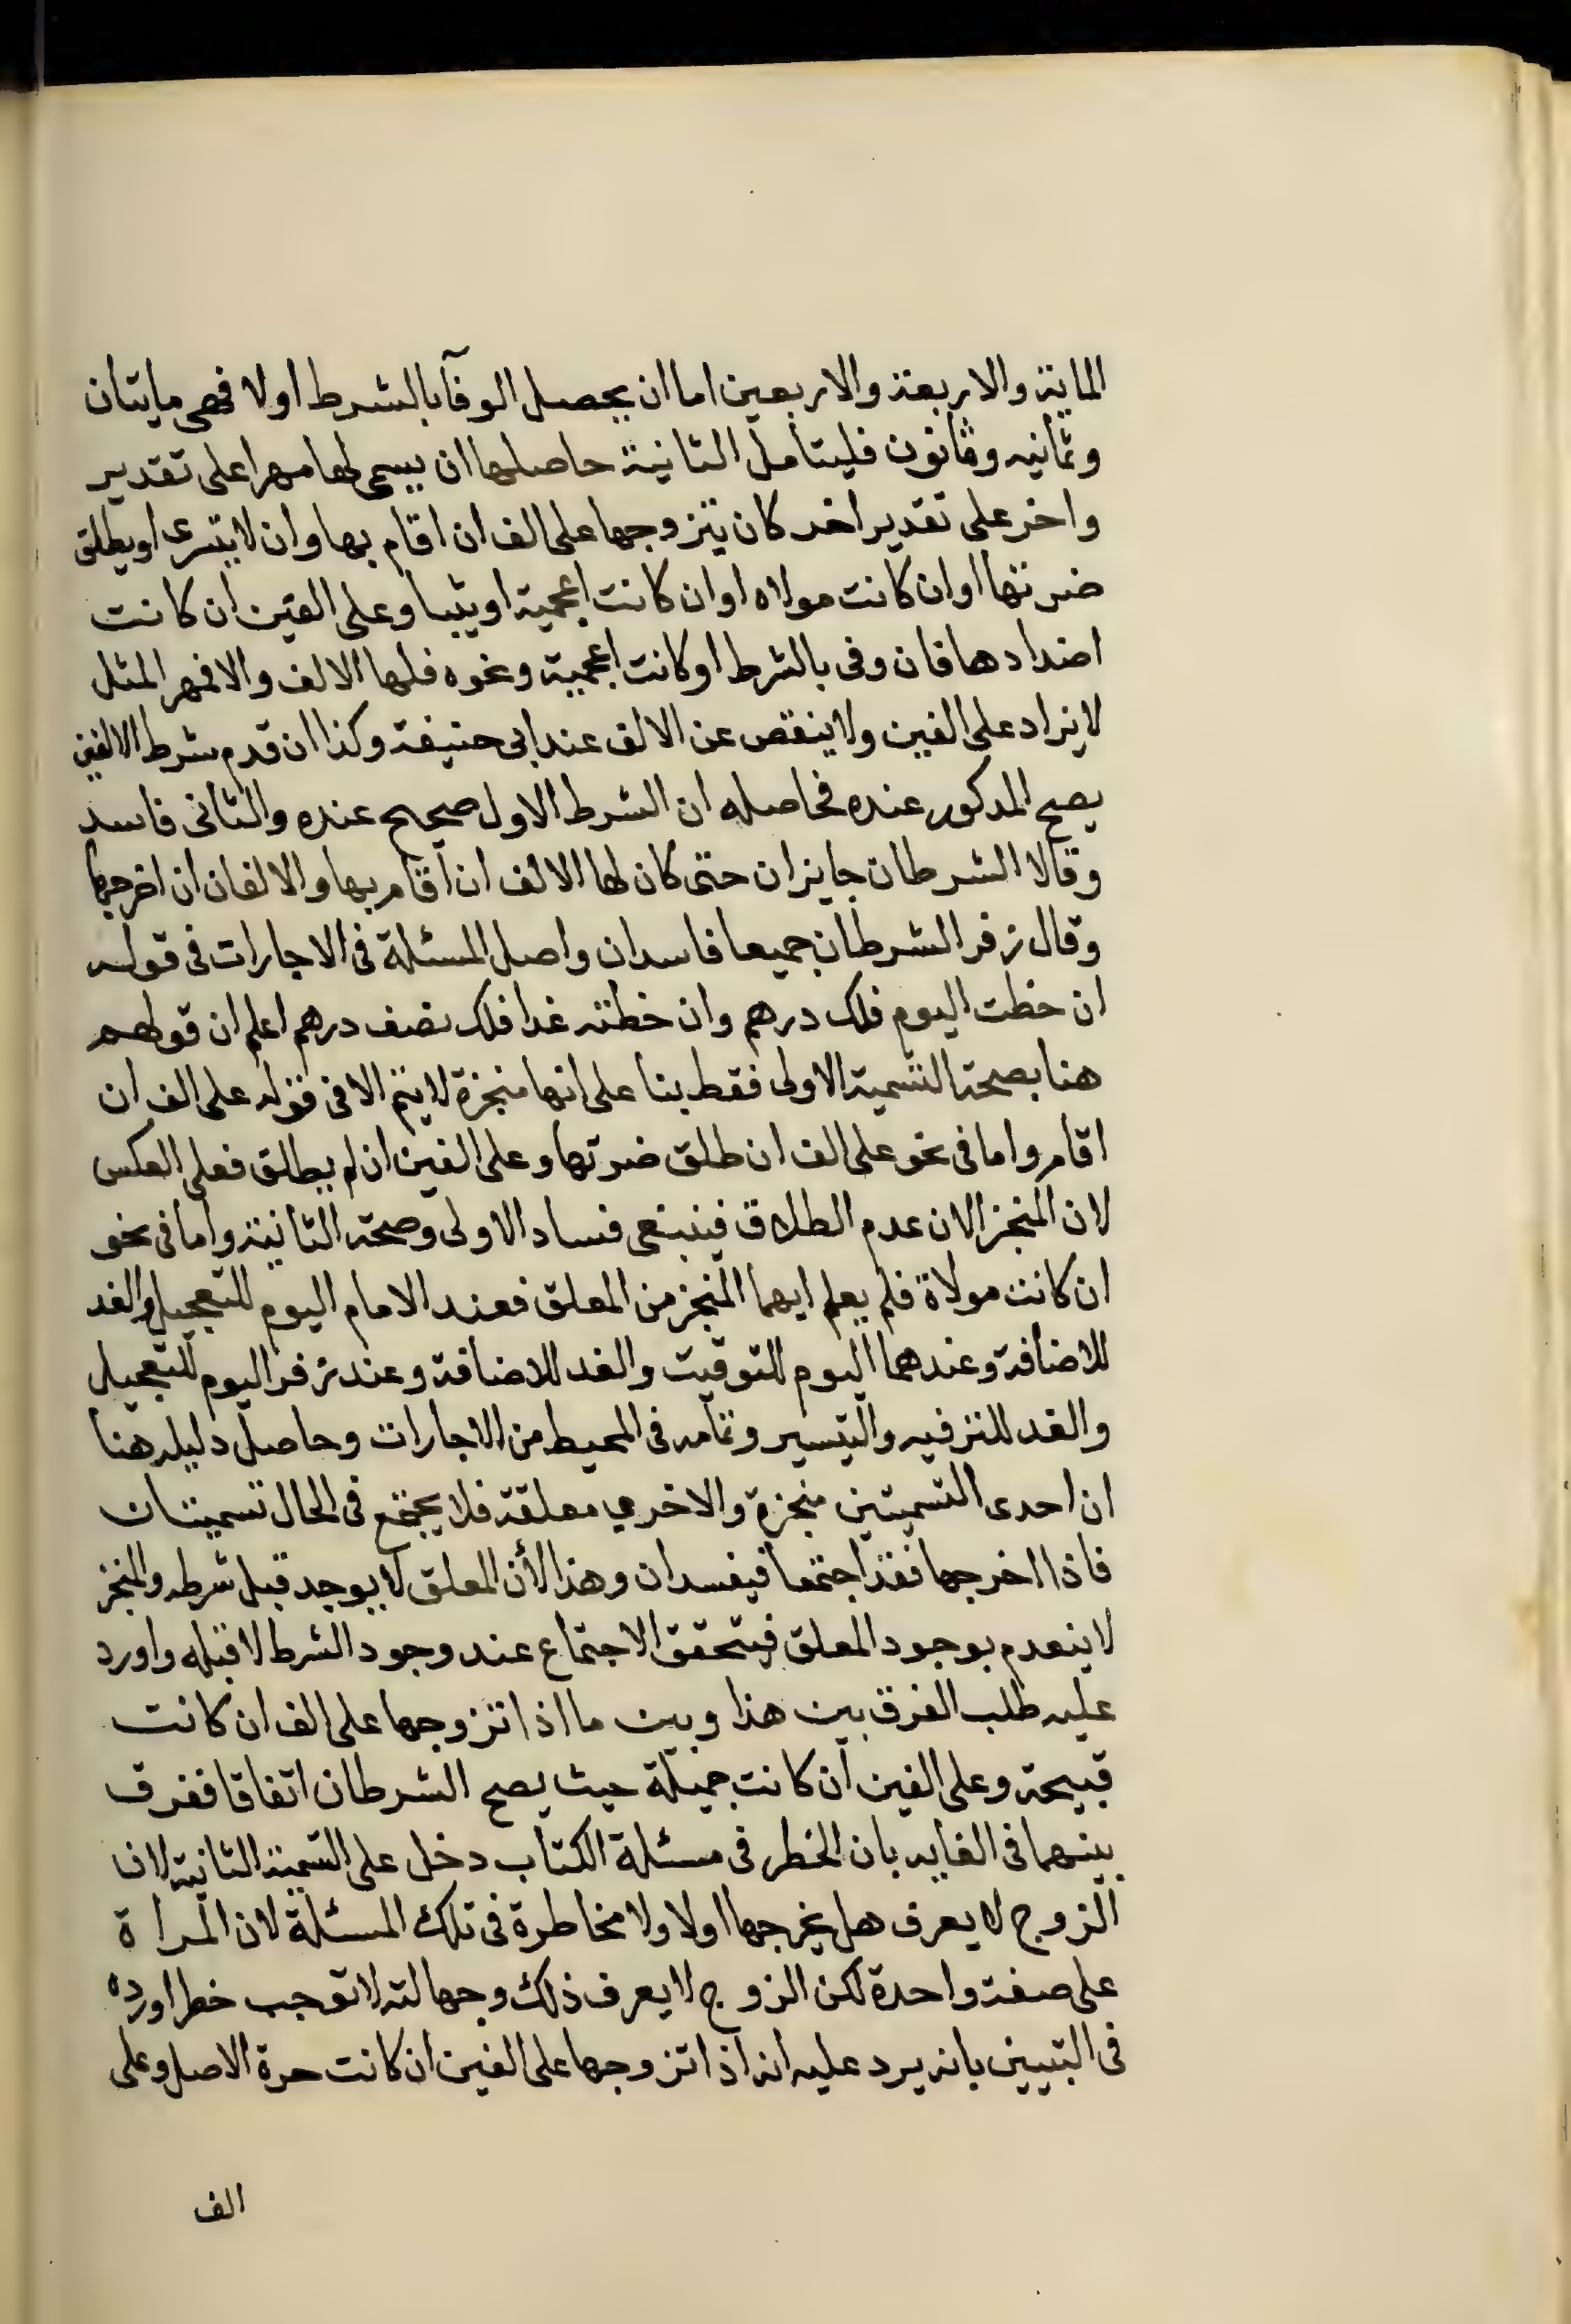 الماية والاربعة والاربعين اما ان يحصل الوفآ بالشرط اولا فهى مايتان
وثمانيه وثمانون فليتامل الثانية حاصلها ان يسمى لها مهرا على تقدير
واخر على تقدير اخر كان يتزوجها على الف ان اقام بها وان لا يتسرى او يطلق
ضرتها او ان كانت مولاه او ان كانت اعجمية او ثيبا وعلى الفين ان كانت
اضدادها فان وفى بالشرط او كانت اعجمية ونحوه فلها الالف والا فمهر المثل
لا يزاد على الفين ولا ينقص عن الالف عند ابى حنيفة وكذا ان قدم شرط الالفين
يصح المذكور عنده فحاصله ان الشرط الاول صحيح عنده والثانى فاسد
وقالا الشرطان جايزان حتى كان لها الالف ان اقام بها والالفان ان اخرجها
وقال زفر الشرطان جميعا فاسدان واصل المسئلة فى الاجارات فى قوله
ان خطت اليوم فلك درهم وان خطته غدا فلك نصف درهم اعلم ان قولهم
هنا بصحة التسمية الاولى فقط بنا على انها منجزة لا يتم الا فى قوله على الف ان
اقام واما فى نحو على الف ان طلق ضرتها وعلى الفين ان لم يطلق فعلى العكس
لان المنجز الان عدم الطلاق فينبغى فساد الاولى وصحة الثانية واما فى نحو
ان كانت مولاة فلم يعلم ايهما المنجز من المعلق فعند الامام اليوم للتعجيل والغد
للاضافة وعندهما اليوم للتوقيت والغد للاضافة وعند زفر اليوم للتعجيل
والغد للترفيه والتيسير وتمامه فى المحيط من الاجارات وحاصل دليله هنا
ان احدى التسميتين منجزة والاخرى معلقة فلا يجتمع فى الحال تسميتان
فاذا اخرجها فقد اجتمعا فيفسدان وهذا لأن المعلق لا يوجد قبل شرطه والمنجز
لا ينعدم بوجود المعلق فيتحقق الاجتماع عند وجود الشرط لا قبله واورد
عليه طلب الفرق بين هذا وبين ما اذا تزوجها على الف ان كانت
قبيحة وعلى الفين ان كانت جميلة حيث يصح الشرطان اتفاقا ففرق
بينهما فى الغايه بان الخطر فى مسئلة الكتاب دخل على التسمية الثانية لان
الزوج لا يعرف هل يخرجها اولا ولا مخاطرة فى تلك المسئلة لان المرأة
على صفة واحدة لكن الزوج لا يعرف ذلك وجهالته لا توجب خطرا ورده
فى التبيين بانه يرد عليه انه اذا تزوجها على الفين ان كانت حرة الاصل وعلى
الف